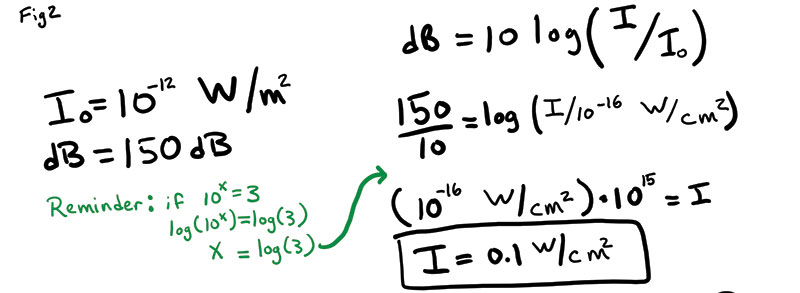 Fig2
I₀ = 10⁻¹² W/m²
dB = 150 dB
Reminder: if 10ˣ = 3
log(10ˣ)=log(3)
x = log(3)
dB = 10 log(I/I₀)
150/10 = log(I/10⁻¹⁶ W/cm²)
(10⁻¹⁶ W/cm²)·10¹⁵ = I
I = 0.1 W/cm²